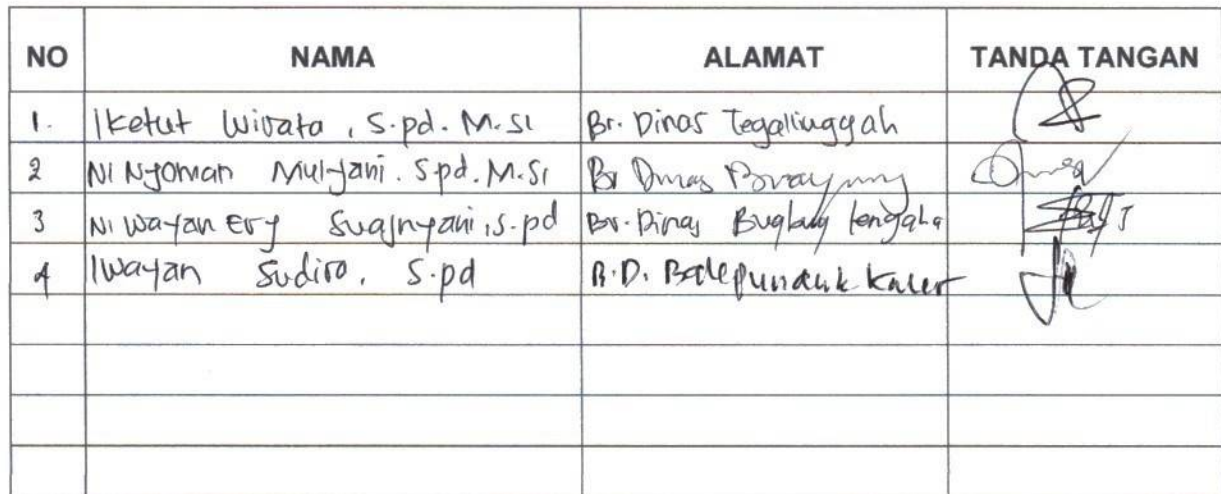 NO NAMA ALAMAT TANDA TANGAN
1. I Ketut Wirata, S.pd. M.Si Br. Dinas Tegallinggah
2 Ni Nyoman Mulyani. S.pd. M.Si Br Dinas
3 Ni Wayan Ery, S.pd Br. Dinas Bugbug tengah
4 I Wayan Sudira, S.pd B.D. Balepunduk Kaler